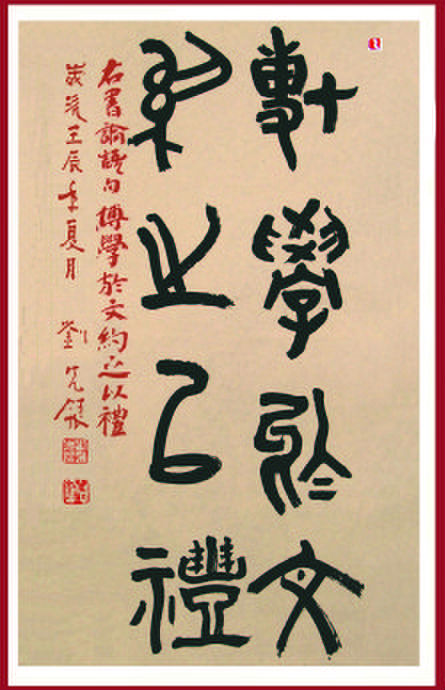 博學於文
約之以禮
右書論語句博學於文約之以禮
歲次壬辰年夏月
劉先銀